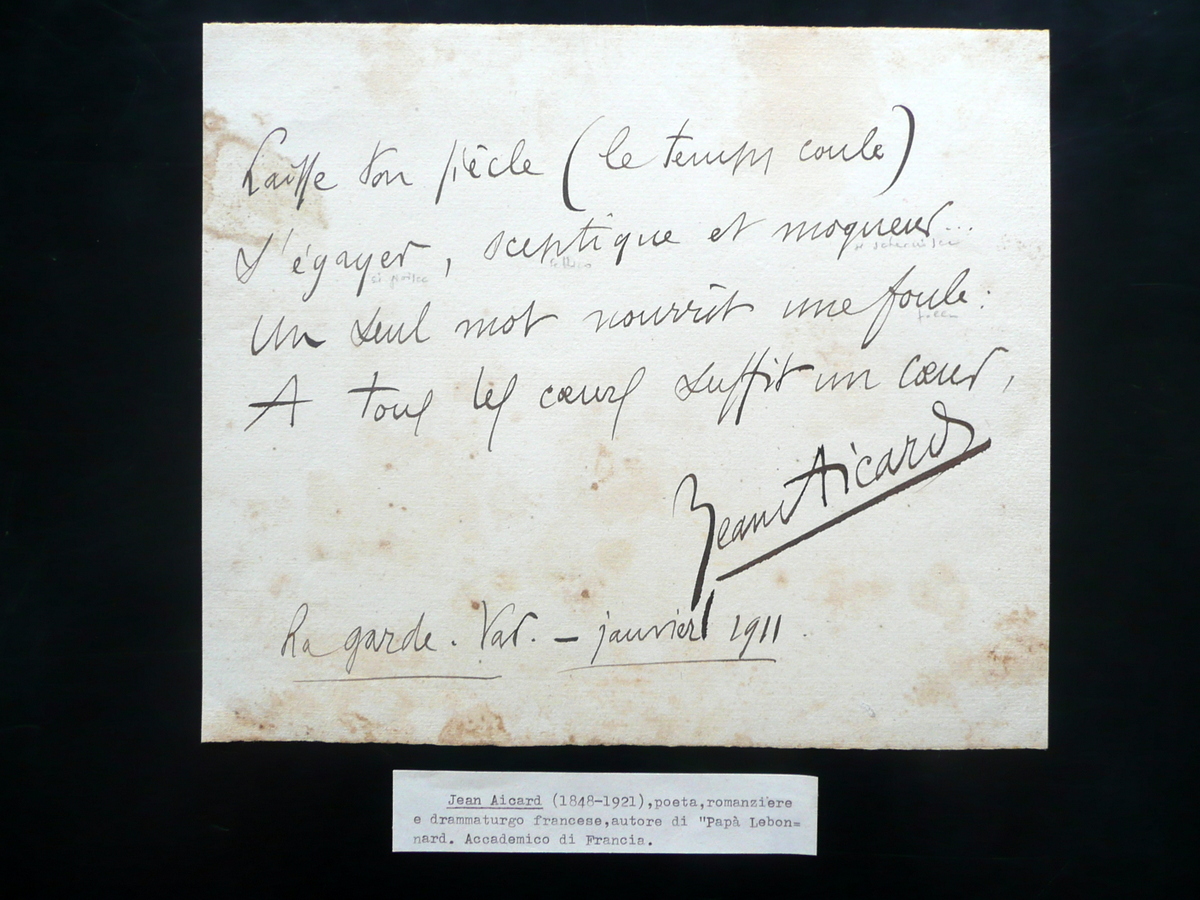 Laisse ton siècle (le temps coule)
S'égayer, sceptique et moqueur...
Un seul mot nourrit une foule:
A tous les cœurs suffit un cœur,
Jean Aicard
La garde. Var. — janvier 1911
Jean Aicard (1848-1921),poeta,romanziere
e drammaturgo francese,autore di "Papà Lebon=
nard. Accademico di Francia.